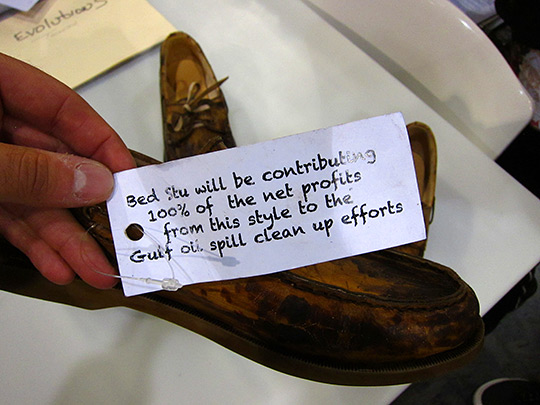 Evolutions
Bed Stu will be contributing
100% of the net profits
from this style to the
Gulf oil spill clean up efforts